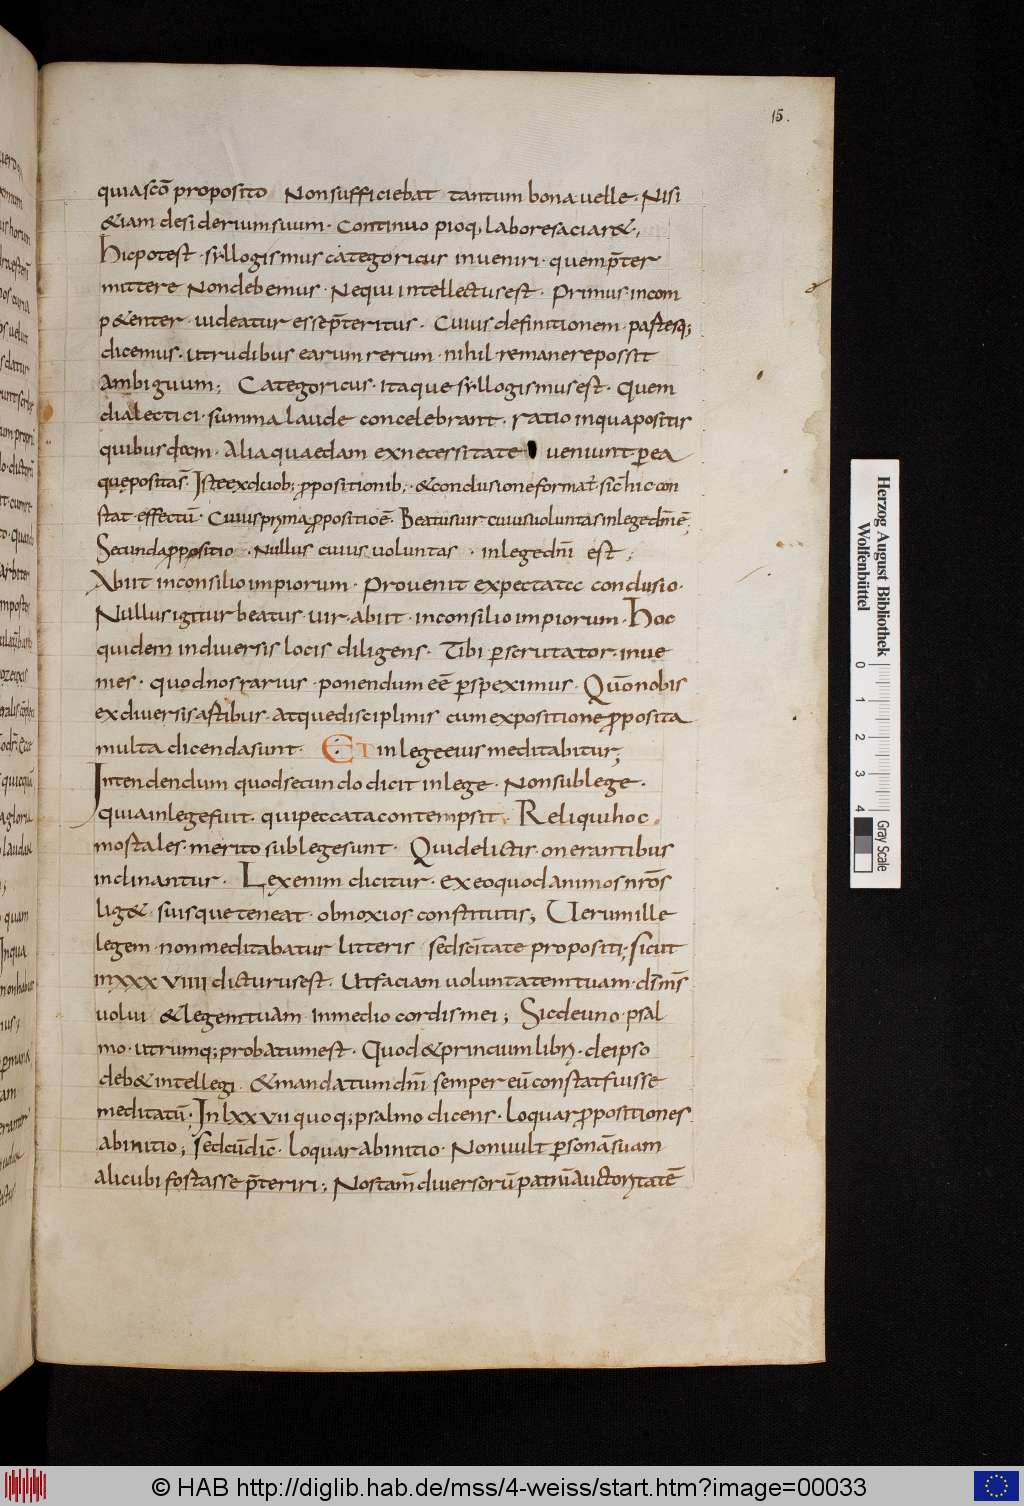 15.
quia scō proposito Non sufficiebat tantum bona uelle. Nisi
&iam desiderium suum. Continuo pioq; labore saciar&;
Hic potest. syllogismus categoricus inueniri. quem p̄ter
mittere Non debemus. Nequi intellectus est. Primus incom
p&enter. uideatur esse p̄teritus. Cuius definitionem. partesq;
dicemus. ut rudibus earum rerum. nihil remanere possit
ambiguum; Categoricus. itaque syllogismus est. Quem
dialectici. summa laude concelebrant. ratio in qua positis
quibusdam. Alia quaedam ex necessitate ueniunt per ea
que positas. Iste ex duob; propositionib; & conclusione format. sic hic con
stat effectū. Cuius prima propositio ē. Beatus uir cuius uoluntas in lege dn̄i ē;
Secunda propositio. Nullus cuius uoluntas. in lege dn̄i est;
Abiit in consilio impiorum. Prouenit expectatec conclusio.
Nullus igitur beatus. uir. abiit. in consilio impiorum. Hoc
quidem in diuersis locis diligens. Tibi perscrutator. inue
nies. quod nos rarius. ponendum eē perspeximus. Quō nobis
ex diuersis artibus. atque disciplinis cum expositione proposita
multa dicenda sunt. ET in lege eius meditabitur;
Intendendum quod secundo dicit in lege. Non sub lege.
quia in lege fuit. qui peccata contempsit. Reliqui hoc
mortales. merito sub lege sunt. Qui delictis. onerantibus
inclinantur. Lex enim dicitur. ex eo quod animos nrōs
lig&. suisque teneat. obnoxios constitutis; Uerum ille
legem. non meditabatur litteris sed scītate propositi; sicut
in xxxviiii dicturus est. Ut faciam uoluntatem tuam. ds̄ ms̄
uolui & legem tuam in medio cordis mei; Sic de uno. psal
mo. utrumq; probatum est. Quod & principium libri. de ipso
deb& intellegi. & mandatum dn̄i semper eū constat fuisse
meditatū. In lxxvii quoq; psalmo dicens. Loquar propositiones
ab initio; sed cū dic̄. Loquar ab initio. Non uult personā suam
alicubi fortasse p̄teriri; Nos tam̄ diuersorū patrū auctoritatē
Herzog August Bibliothek
Wolfenbüttel
0 1 2 3 4
Gray Scale
© HAB http://diglib.hab.de/mss/4-weiss/start.htm?image=00033